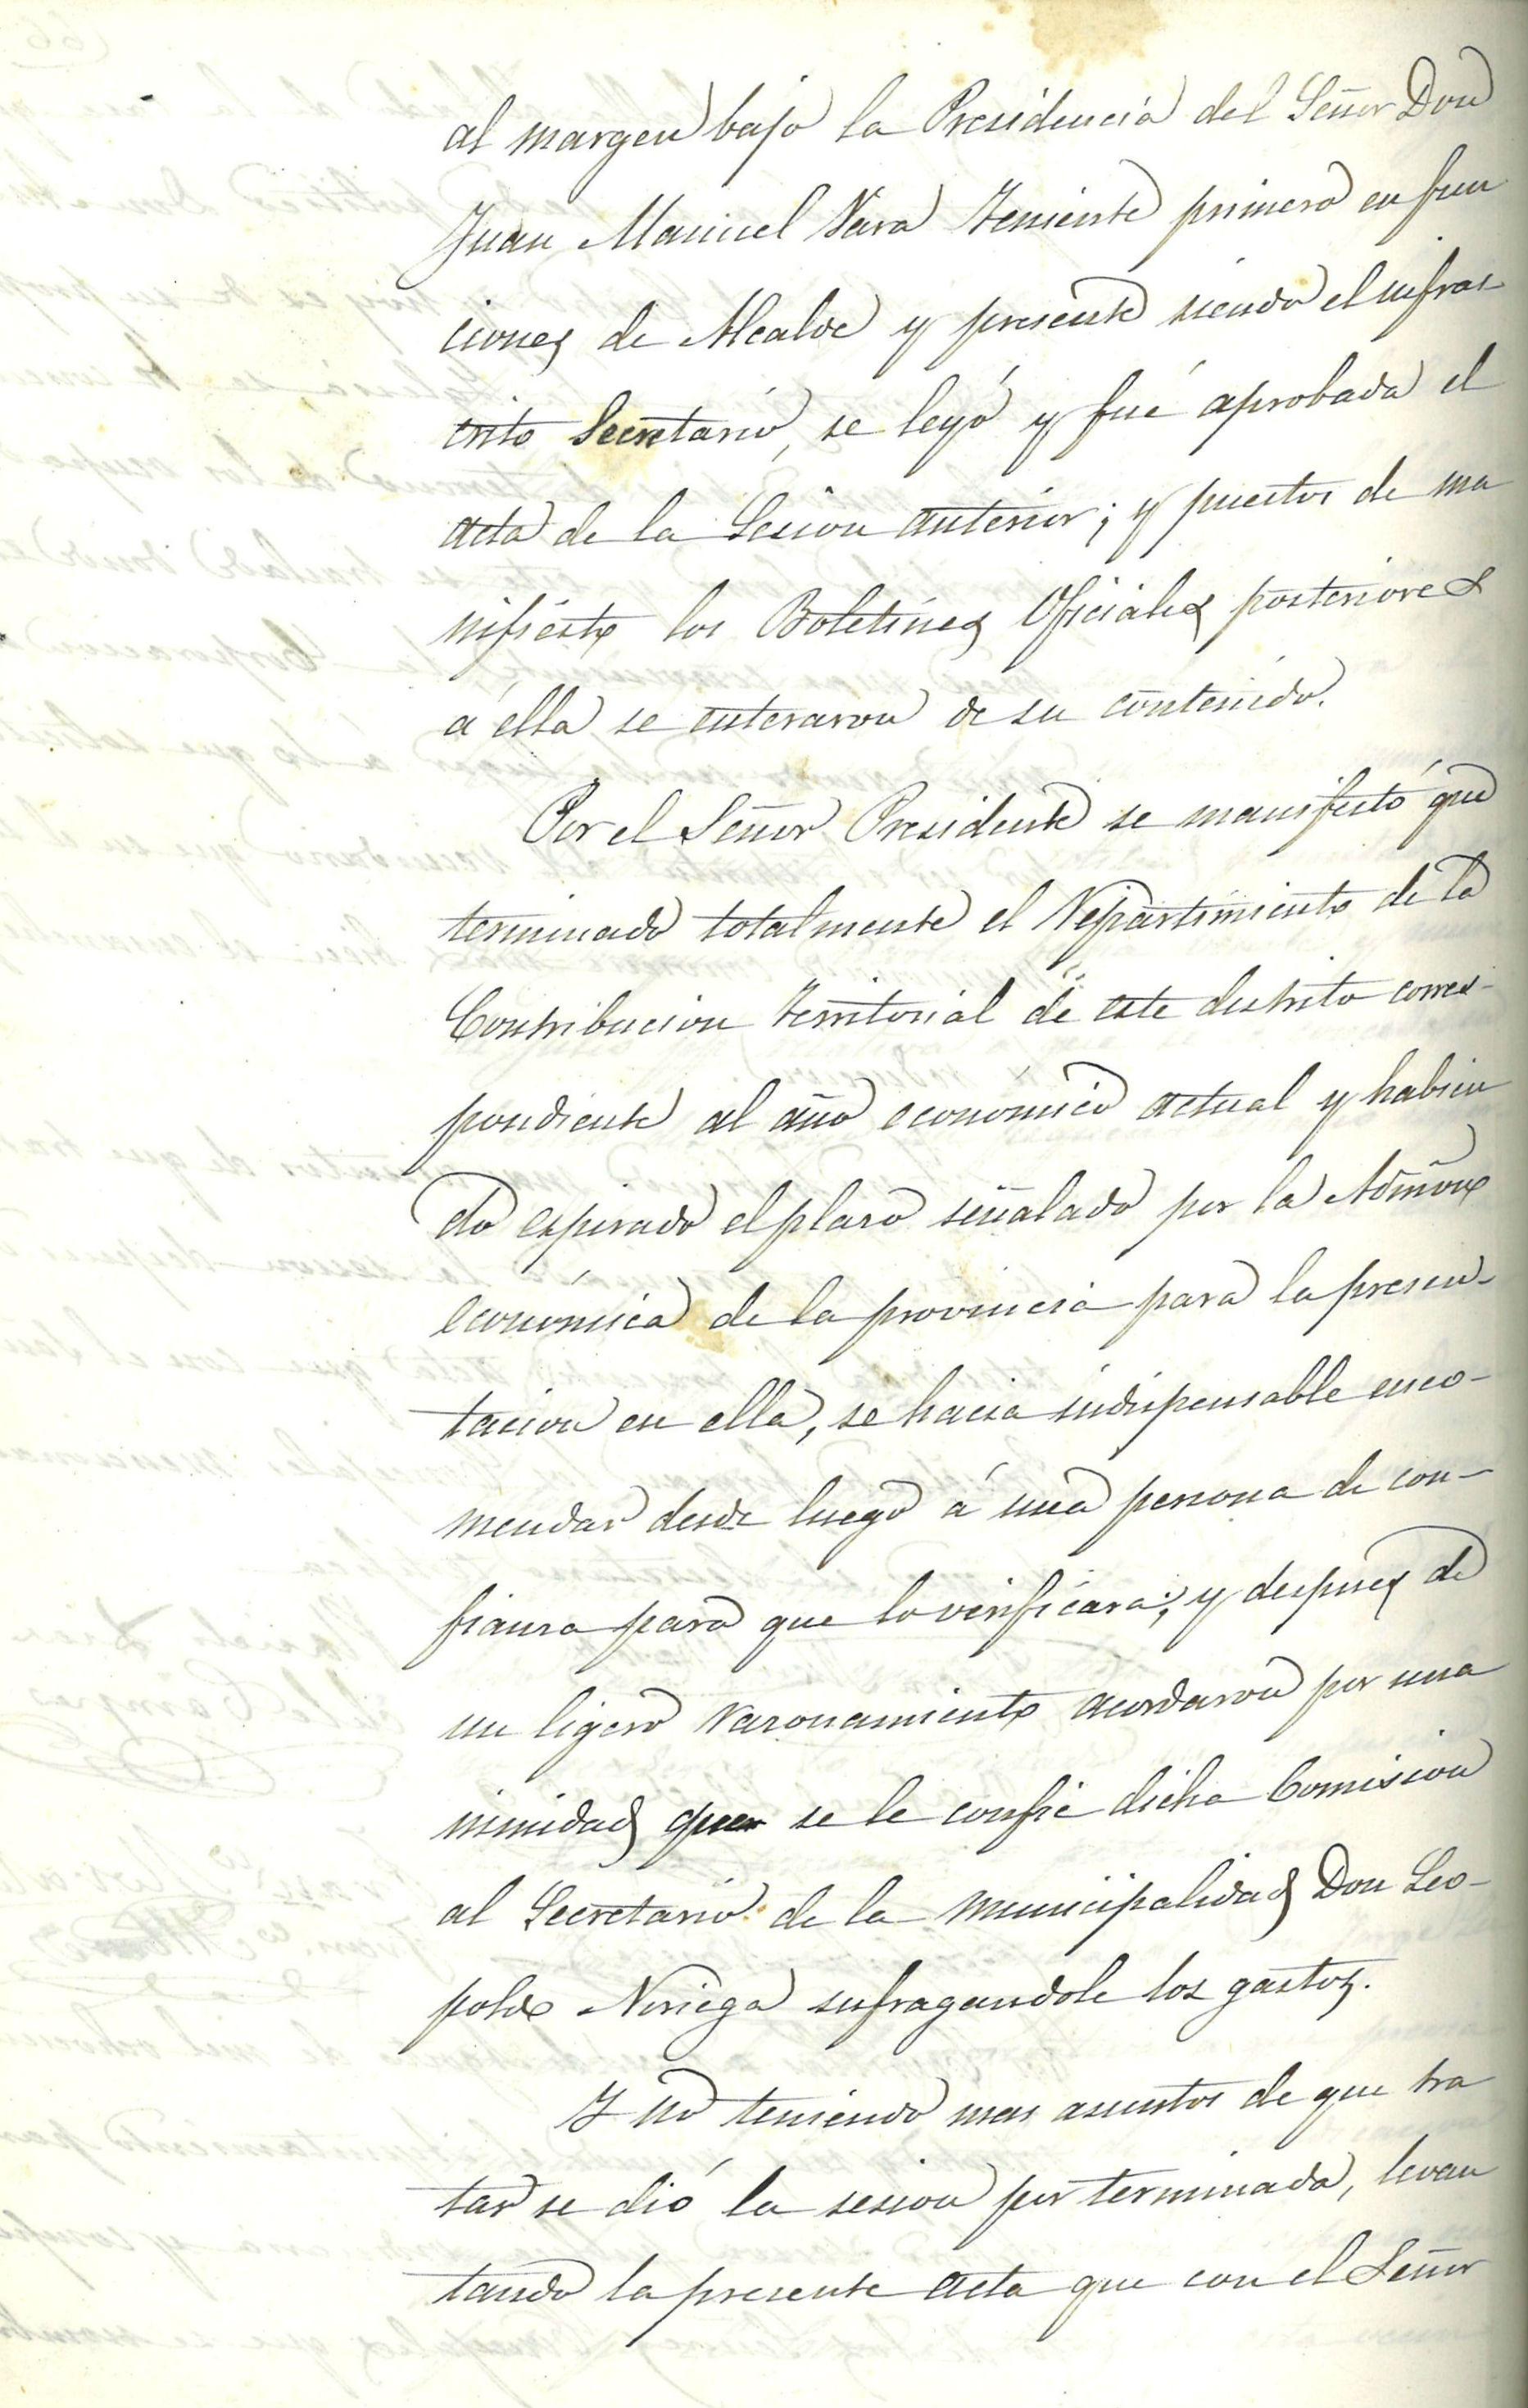 al margen bajo la Presidencia del Señor Don
Juan Manuel Vara Teniente primero en fun
ciones de Alcalde y presente siendo el infras-
crito Secretario, se leyó y fué aprobada el
acta de la Sesion anterior; y puestos de ma
nifiesto los Boletines Oficiales posteriores
á ella se enteraron de su contenido.
Por el Señor Presidente se manifestó que
terminado totalmente el Repartimiento de la
Contribucion territorial de este distrito corres-
pondiente al año económico actual y habien
do espirado el plazo señalado por la Admon
económica de la provincia para la presen-
tacion en ella, se hacia indispensable enco-
mendar desde luego á una persona de con-
fianza para que lo verificara; y despues de
un ligero razonamiento acordaron por una
nimidad que se le confie dicha Comision
al Secretario de la Municipalidad Don Leo-
poldo Noriega sufragandole los gastos.
Y no teniendo mas asuntos de que tra
tar se dió la sesion por terminada, levan
tando la presente acta que con el Señor